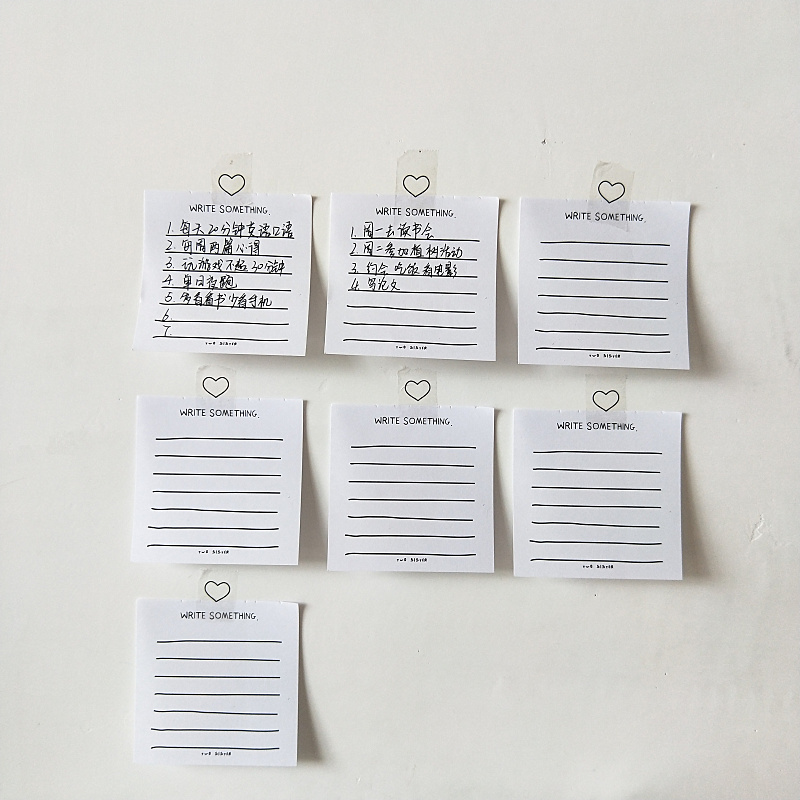 WRITE SOMETHING.
1. 每天20分钟英语口语
2. 每周两篇心得
3. 玩游戏不超30分钟
4. 单日夜跑
5. 多看看书少看手机
6.
7.
TWO SISTER
WRITE SOMETHING.
1. 周一去读书会
2. 周二参加植树活动
3. 约会 吃饭 看电影
4. 写论文
TWO SISTER
WRITE SOMETHING.
TWO SISTER
WRITE SOMETHING.
TWO SISTER
WRITE SOMETHING.
TWO SISTER
WRITE SOMETHING.
TWO SISTER
WRITE SOMETHING.
TWO SISTER